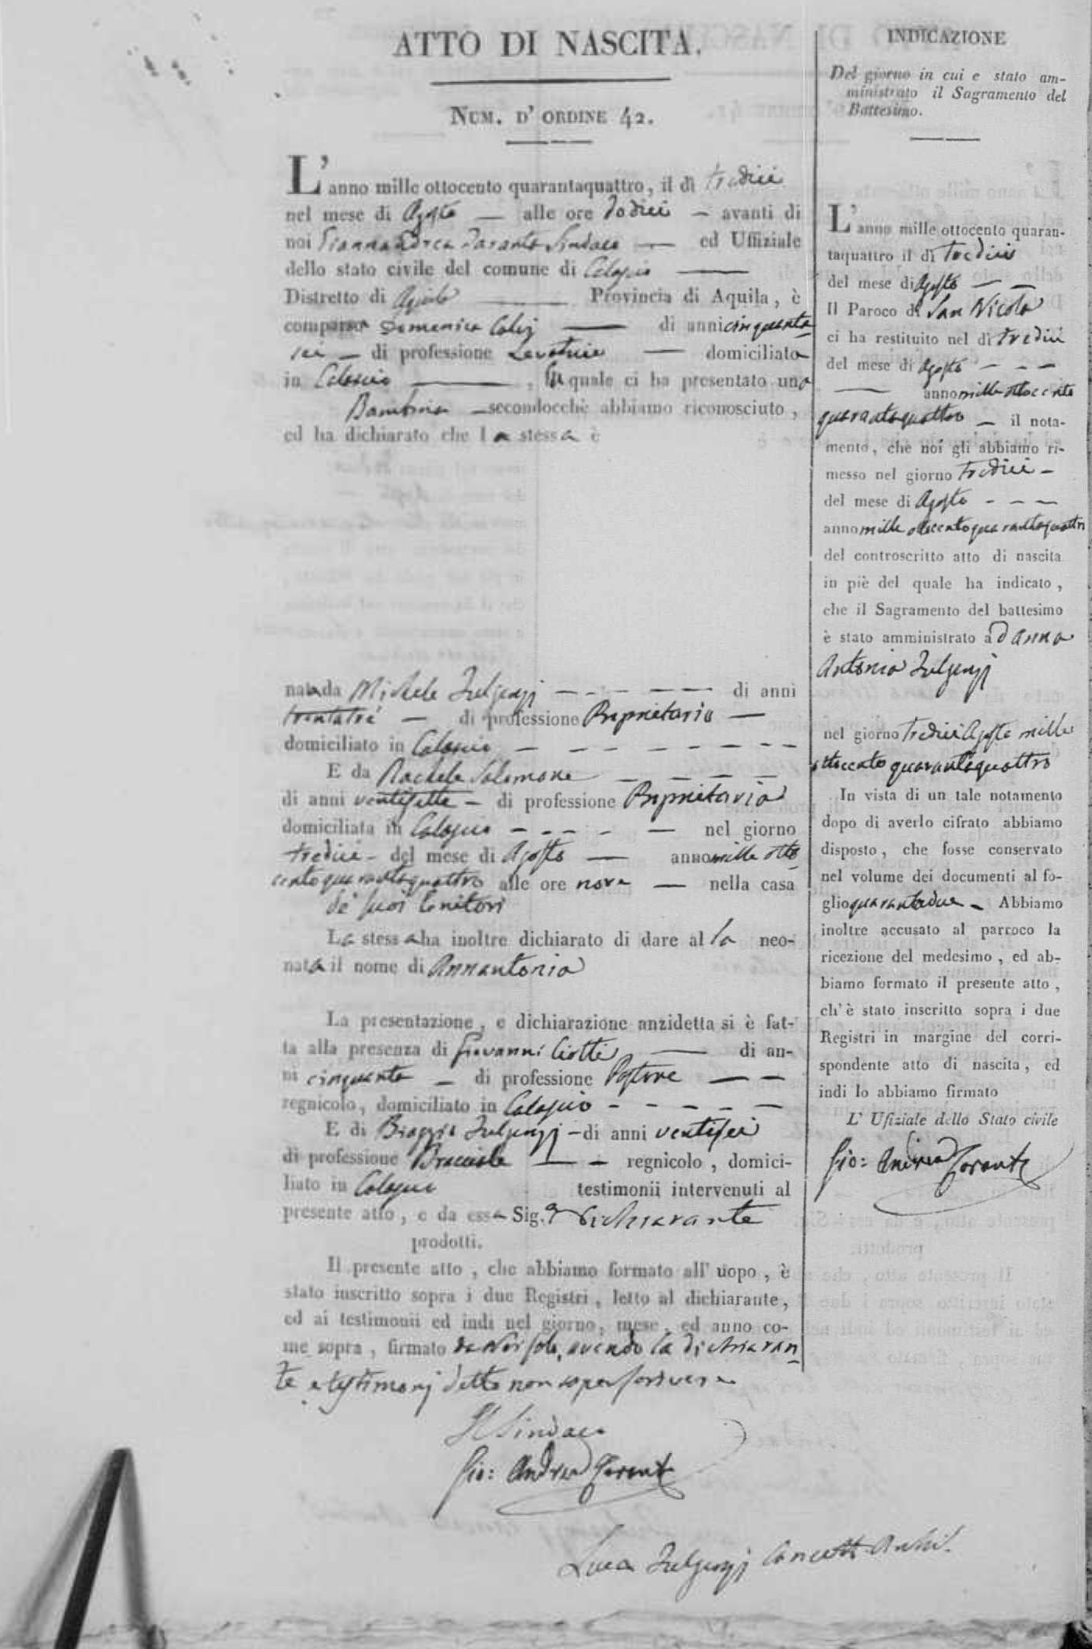 ATTO DI NASCITA.
NUM. D' ORDINE 42.
L'anno mille ottocento quarantaquattro, il di tredici
nel mese di Agosto — alle ore dodici — avanti di
noi Giannandrea Taranta Sindaco — ed Uffiziale
dello stato civile del comune di Calascio —
Distretto di Aquila — Provincia di Aquila, è
comparsa Domenica — di anni cinquanta
sei — di professione Levatrice — domiciliata
in Calascio — , la quale ci ha presentato una
Bambina — secondocchè abbiamo riconosciuto,
ed ha dichiarato che la stessa è
nata da Michele Fulgenzj — di anni
trentatrè — di professione Proprietario —
domiciliato in Calascio —
E da Rachele Salomone —
di anni ventisette — di professione Proprietaria
domiciliata in Calascio — nel giorno
tredici — del mese di Agosto — anno mille otto
cento quarantaquattro alle ore nove — nella casa
de' suoi Genitori
La stessa ha inoltre dichiarato di dare alla neo-
nata il nome di Annantonia
La presentazione, e dichiarazione anzidetta si è fat-
ta alla presenza di Giovanni Ciotti — di an-
ni cinquanta — di professione Pastore —
regnicolo, domiciliato in Calascio —
E di Biaggio Fulgenzj — di anni ventisei
di professione Bracciale — regnicolo, domici-
liato in Calascio testimonii intervenuti al
presente atto, e da essa Sig.a dichiarante
prodotti.
Il presente atto, che abbiamo formato all' uopo, è
stato inscritto sopra i due Registri, letto al dichiarante,
ed ai testimonii ed indi nel giorno, mese, ed anno co-
me sopra, firmato da Noi solo, avendo la dichiaran
te e testimonj detto non saper scrivere
Il Sindaco
Gio: Andrea Taranta
Luca Fulgenzj
INDICAZIONE
Del giorno in cui e stato am-
ministrato il Sagramento del
Battesimo.
L'anno mille ottocento quaran-
taquattro il di tredici
del mese di Agosto — —
Il Paroco di San Nicola
ci ha restituito nel di tredici
del mese di Agosto — — —
— anno mille ottocento
quarantaquattro — il nota-
mento, che noi gli abbiamo ri-
messo nel giorno tredici —
del mese di Agosto — — —
anno mille ottocento quarantaquattro
del controscritto atto di nascita
in piè del quale ha indicato,
che il Sagramento del battesimo
è stato amministrato ad Anna
Antonia Fulgenzj
nel giorno tredici Agosto mille
ottocento quarantaquattro
In vista di un tale notamento
dopo di averlo cifrato abbiamo
disposto, che fosse conservato
nel volume dei documenti al fo-
glio quarantadue — Abbiamo
inoltre accusato al parroco la
ricezione del medesimo, ed ab-
biamo formato il presente atto,
ch' è stato inscritto sopra i due
Registri in margine del corri-
spondente atto di nascita, ed
indi lo abbiamo firmato
L' Ufiziale dello Stato civile
Gio: Andrea Taranta